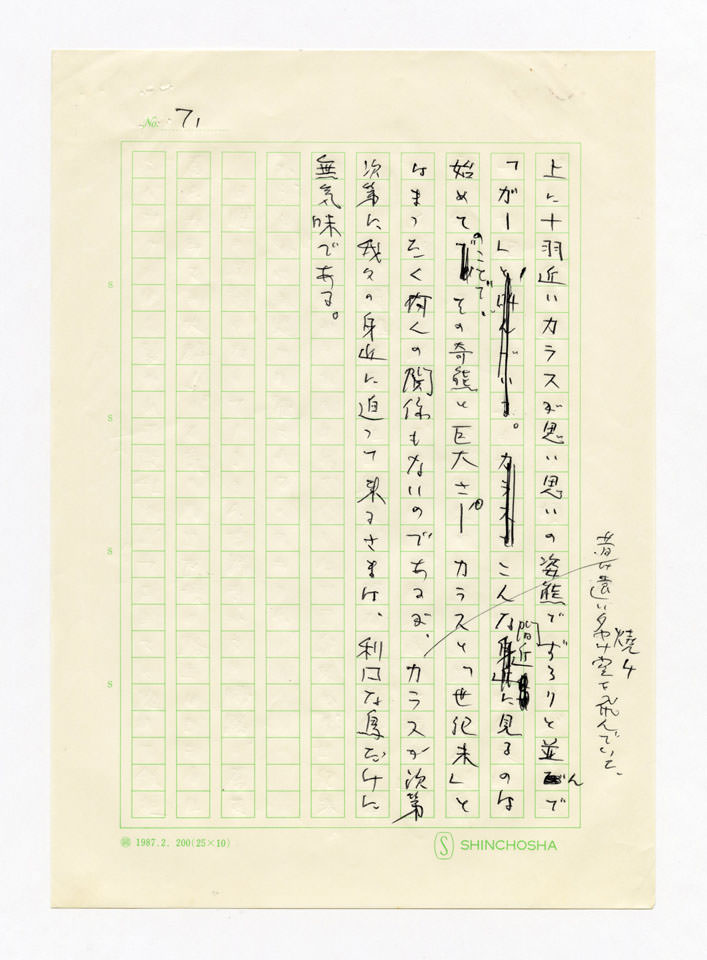 No. 71
上に十羽近いカラスが思い思いの姿態でずらりと並んで
「ガー」と。こんな間近に見るのは
始めてのことで、その奇態と巨大さ。カラスと「世紀末」と
はまったく何んの関係もないのであるが、カラスが次第
次第に我々の身近に迫って来るさまは、利口な鳥だけに
無気味である。
昔は遠い夕焼け空を飛んでいて、
S
S
S
S
1987. 2. 200(25×10)
S SHINCHOSHA